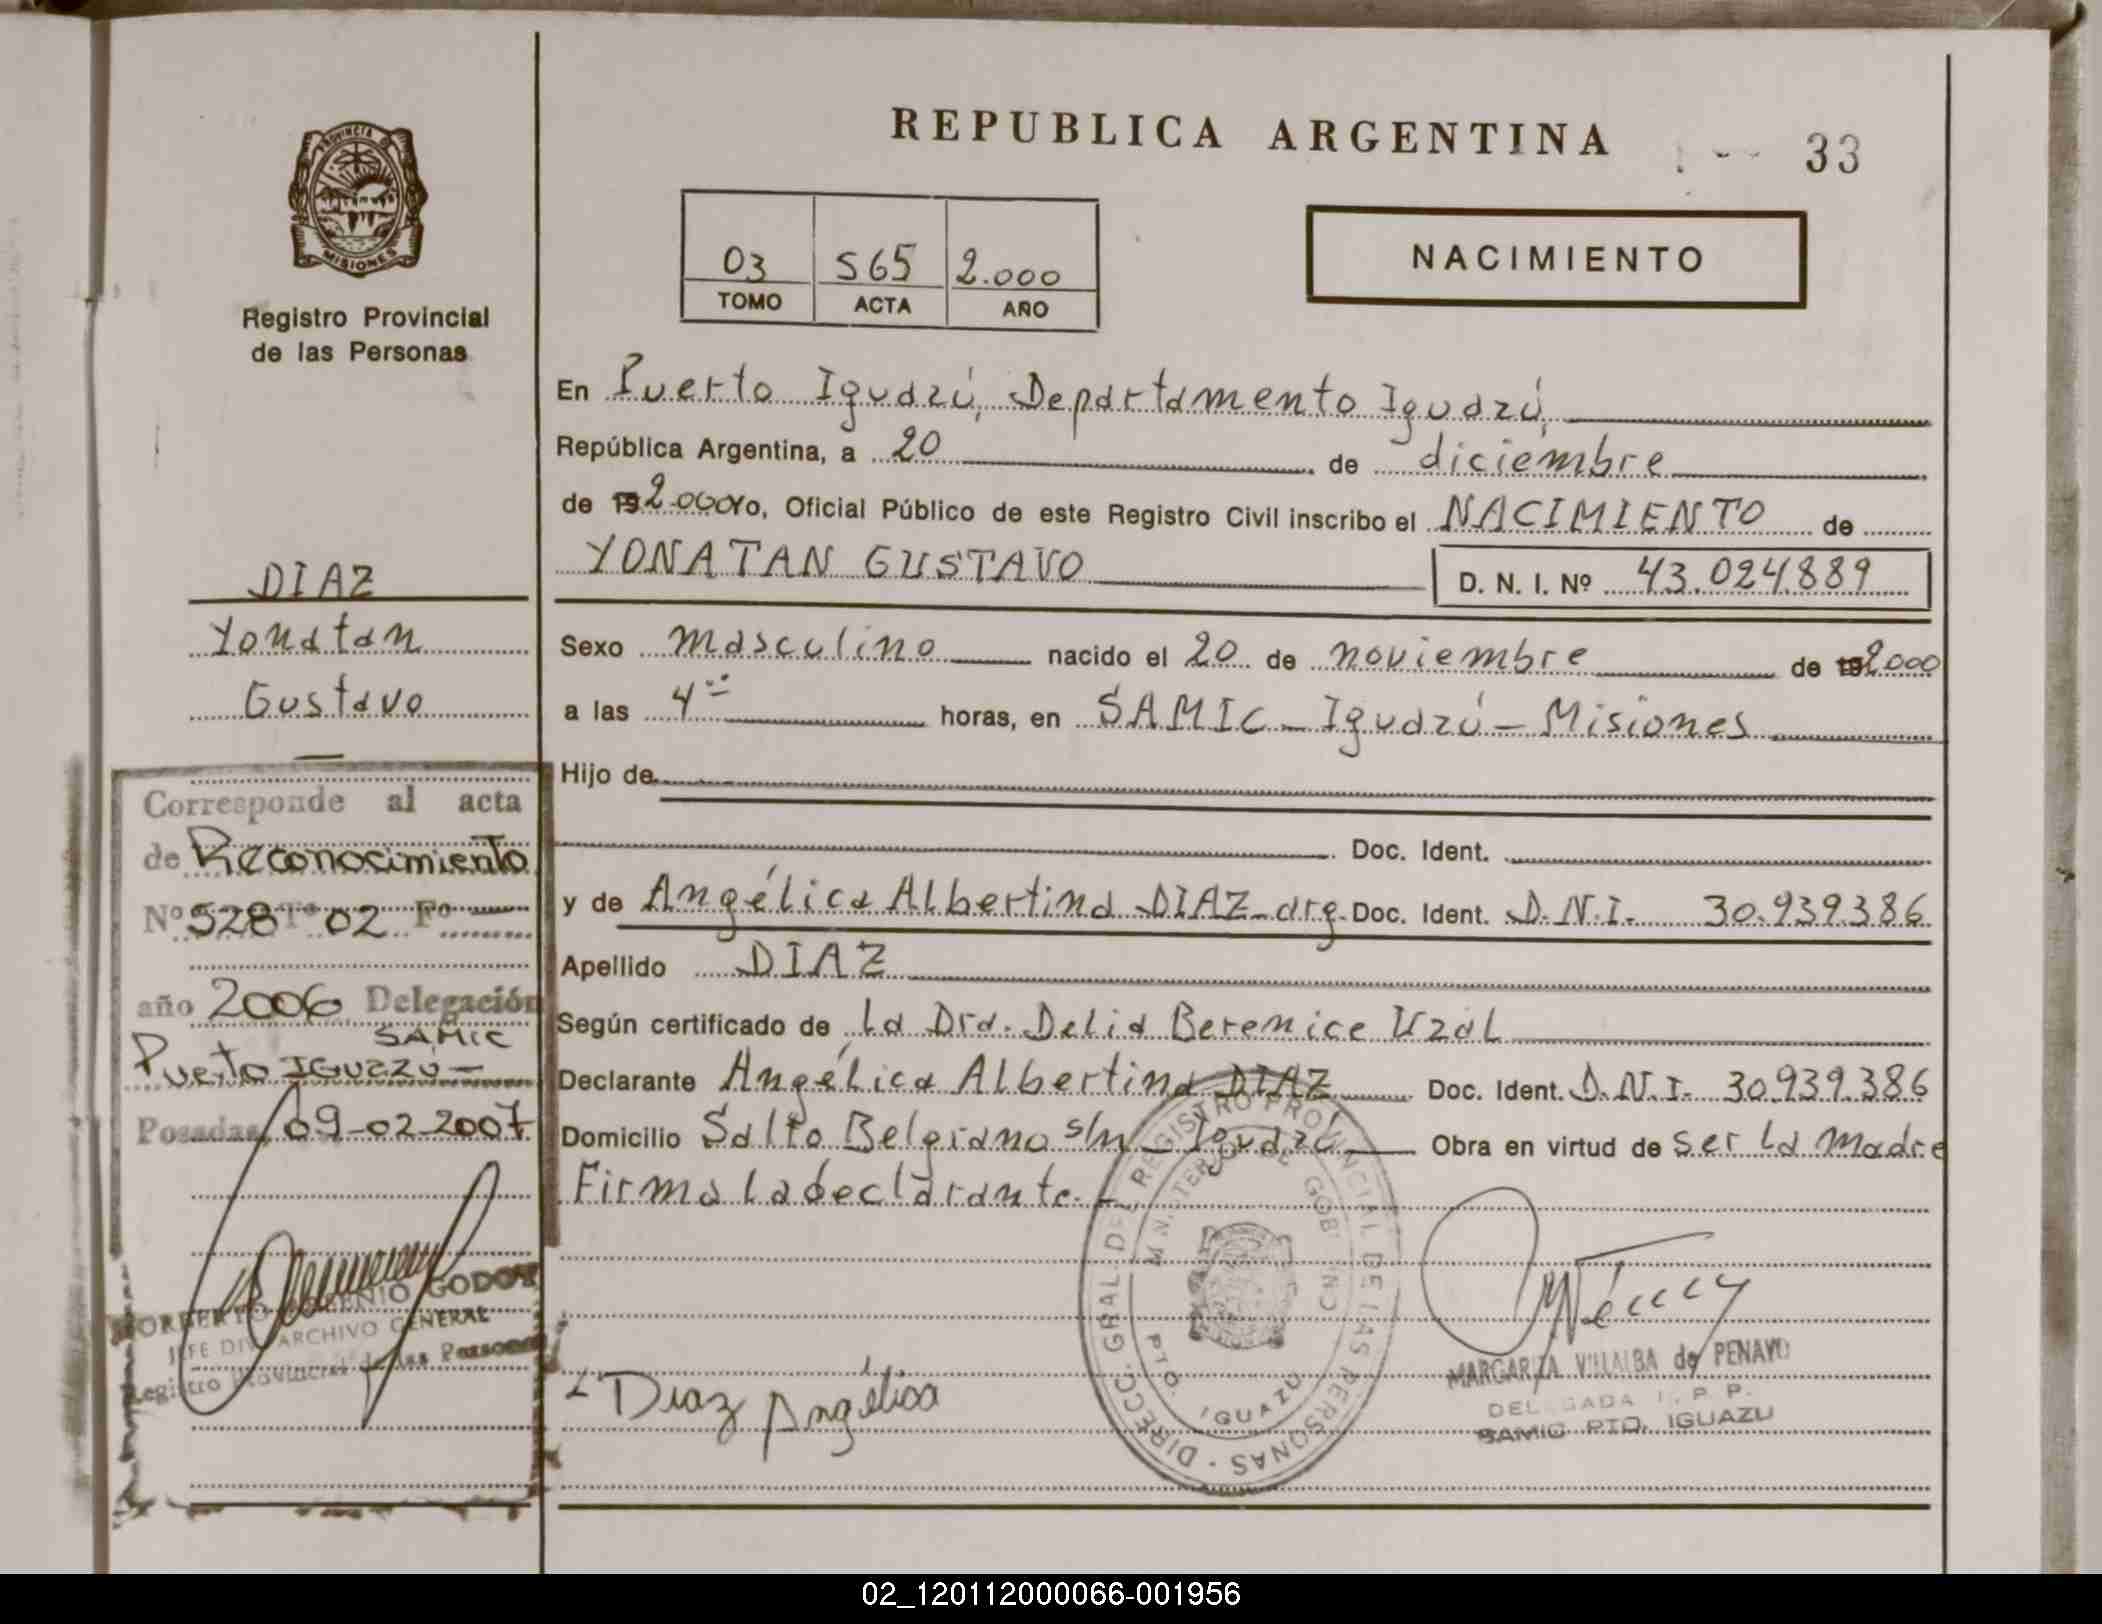 PROVINCIA D
MISIONES
Registro Provincial
de las Personas
REPUBLICA ARGENTINA
33
03 565 2.000
TOMO ACTA AÑO
NACIMIENTO
En Puerto Iguazú, Departamento Iguazú,
República Argentina, a 20 de diciembre
de 19 2.000 Yo, Oficial Público de este Registro Civil inscribo el NACIMIENTO de
YONATAN GUSTAVO D. N. I. Nº 43.024.889
DIAZ
Yonatan
Gustavo
Sexo masculino nacido el 20 de noviembre de 19 2.000
a las 4 horas, en SAMIC - Iguazú - Misiones
Hijo de
Doc. Ident.
y de Angélica Albertina DIAZ - arg. Doc. Ident. D.N.I. 30.939.386
Apellido DIAZ
Según certificado de La Dra. Delia Berenice Uzal
Declarante Angélica Albertina DIAZ Doc. Ident. D.N.I. 30.939.386
Domicilio Salto Belgrano s/n Iguazú Obra en virtud de ser la madre
Firma la declarante. -
Corresponde al acta
de Reconocimiento
Nº 528 Tº 02 Fº —
año 2006 Delegación
SAMIC
Puerto IGUAZU -
Posadas, 09-02-2007
NORBERTO GODOY
JEFE DIV. ARCHIVO GENERAL
Registro Provincial de las Personas
Diaz Angélica
DIRECC. GRAL. DEL REGISTRO PROVINCIAL DE LAS PERSONAS
MINISTERIO DE GOBIERNO
PTO. IGUAZU
MARGARITA VILLALBA de PENAYO
DELEGADA R. P. P.
SAMIC PTO. IGUAZU
02_120112000066-001956